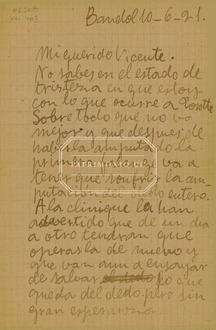 Bandol 10-6-21.
Mi querido Vicente.
No sabes en el estado de
tristeza en que estoy
con lo que ocurre a Josette
Sobre todo que no va
mejor y que despues de
la
primera va a
tener que sufrir la am-
putacion del dedo entero.
A la clinique la han
advertido que de un dia
a otro tendran que
operarla de nuevo y
que van aun a ensayar
de salvar lo que
queda del dedo, pero sin
gran esperanza